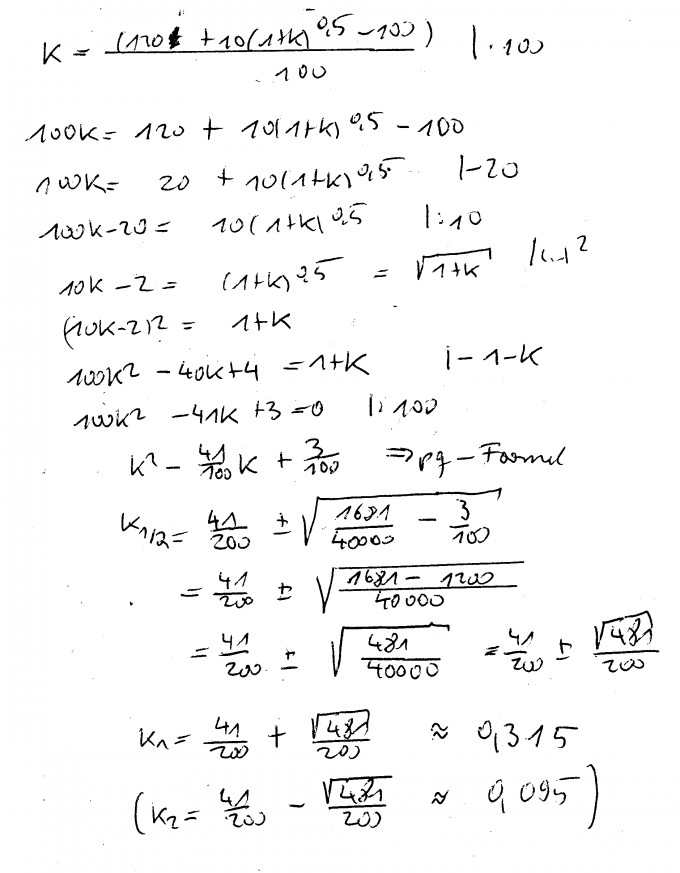 K = (120 + 10(1+K)^0,5 - 100) / 100 | · 100
100K = 120 + 10(1+K)^0,5 - 100
100K = 20 + 10(1+K)^0,5 |-20
100K-20 = 10(1+K)^0,5 |:10
10K - 2 = (1+K)^0,5 = √(1+K) |(..)^2
(10K-2)^2 = 1+K
100K^2 - 40K+4 = 1+K |-1-K
100K^2 - 41K + 3 = 0 |:100
K^2 - 41/100 K + 3/100 ⇒ pq-Formel
K1/2 = 41/200 ± √(1681/40000 - 3/100)
= 41/200 ± √((1681 - 1200)/40000)
= 41/200 ± √(481/40000) = 41/200 ± √481/200
K1 = 41/200 + √481/200 ≈ 0,315
(K2 = 41/200 - √481/200 ≈ 0,095)